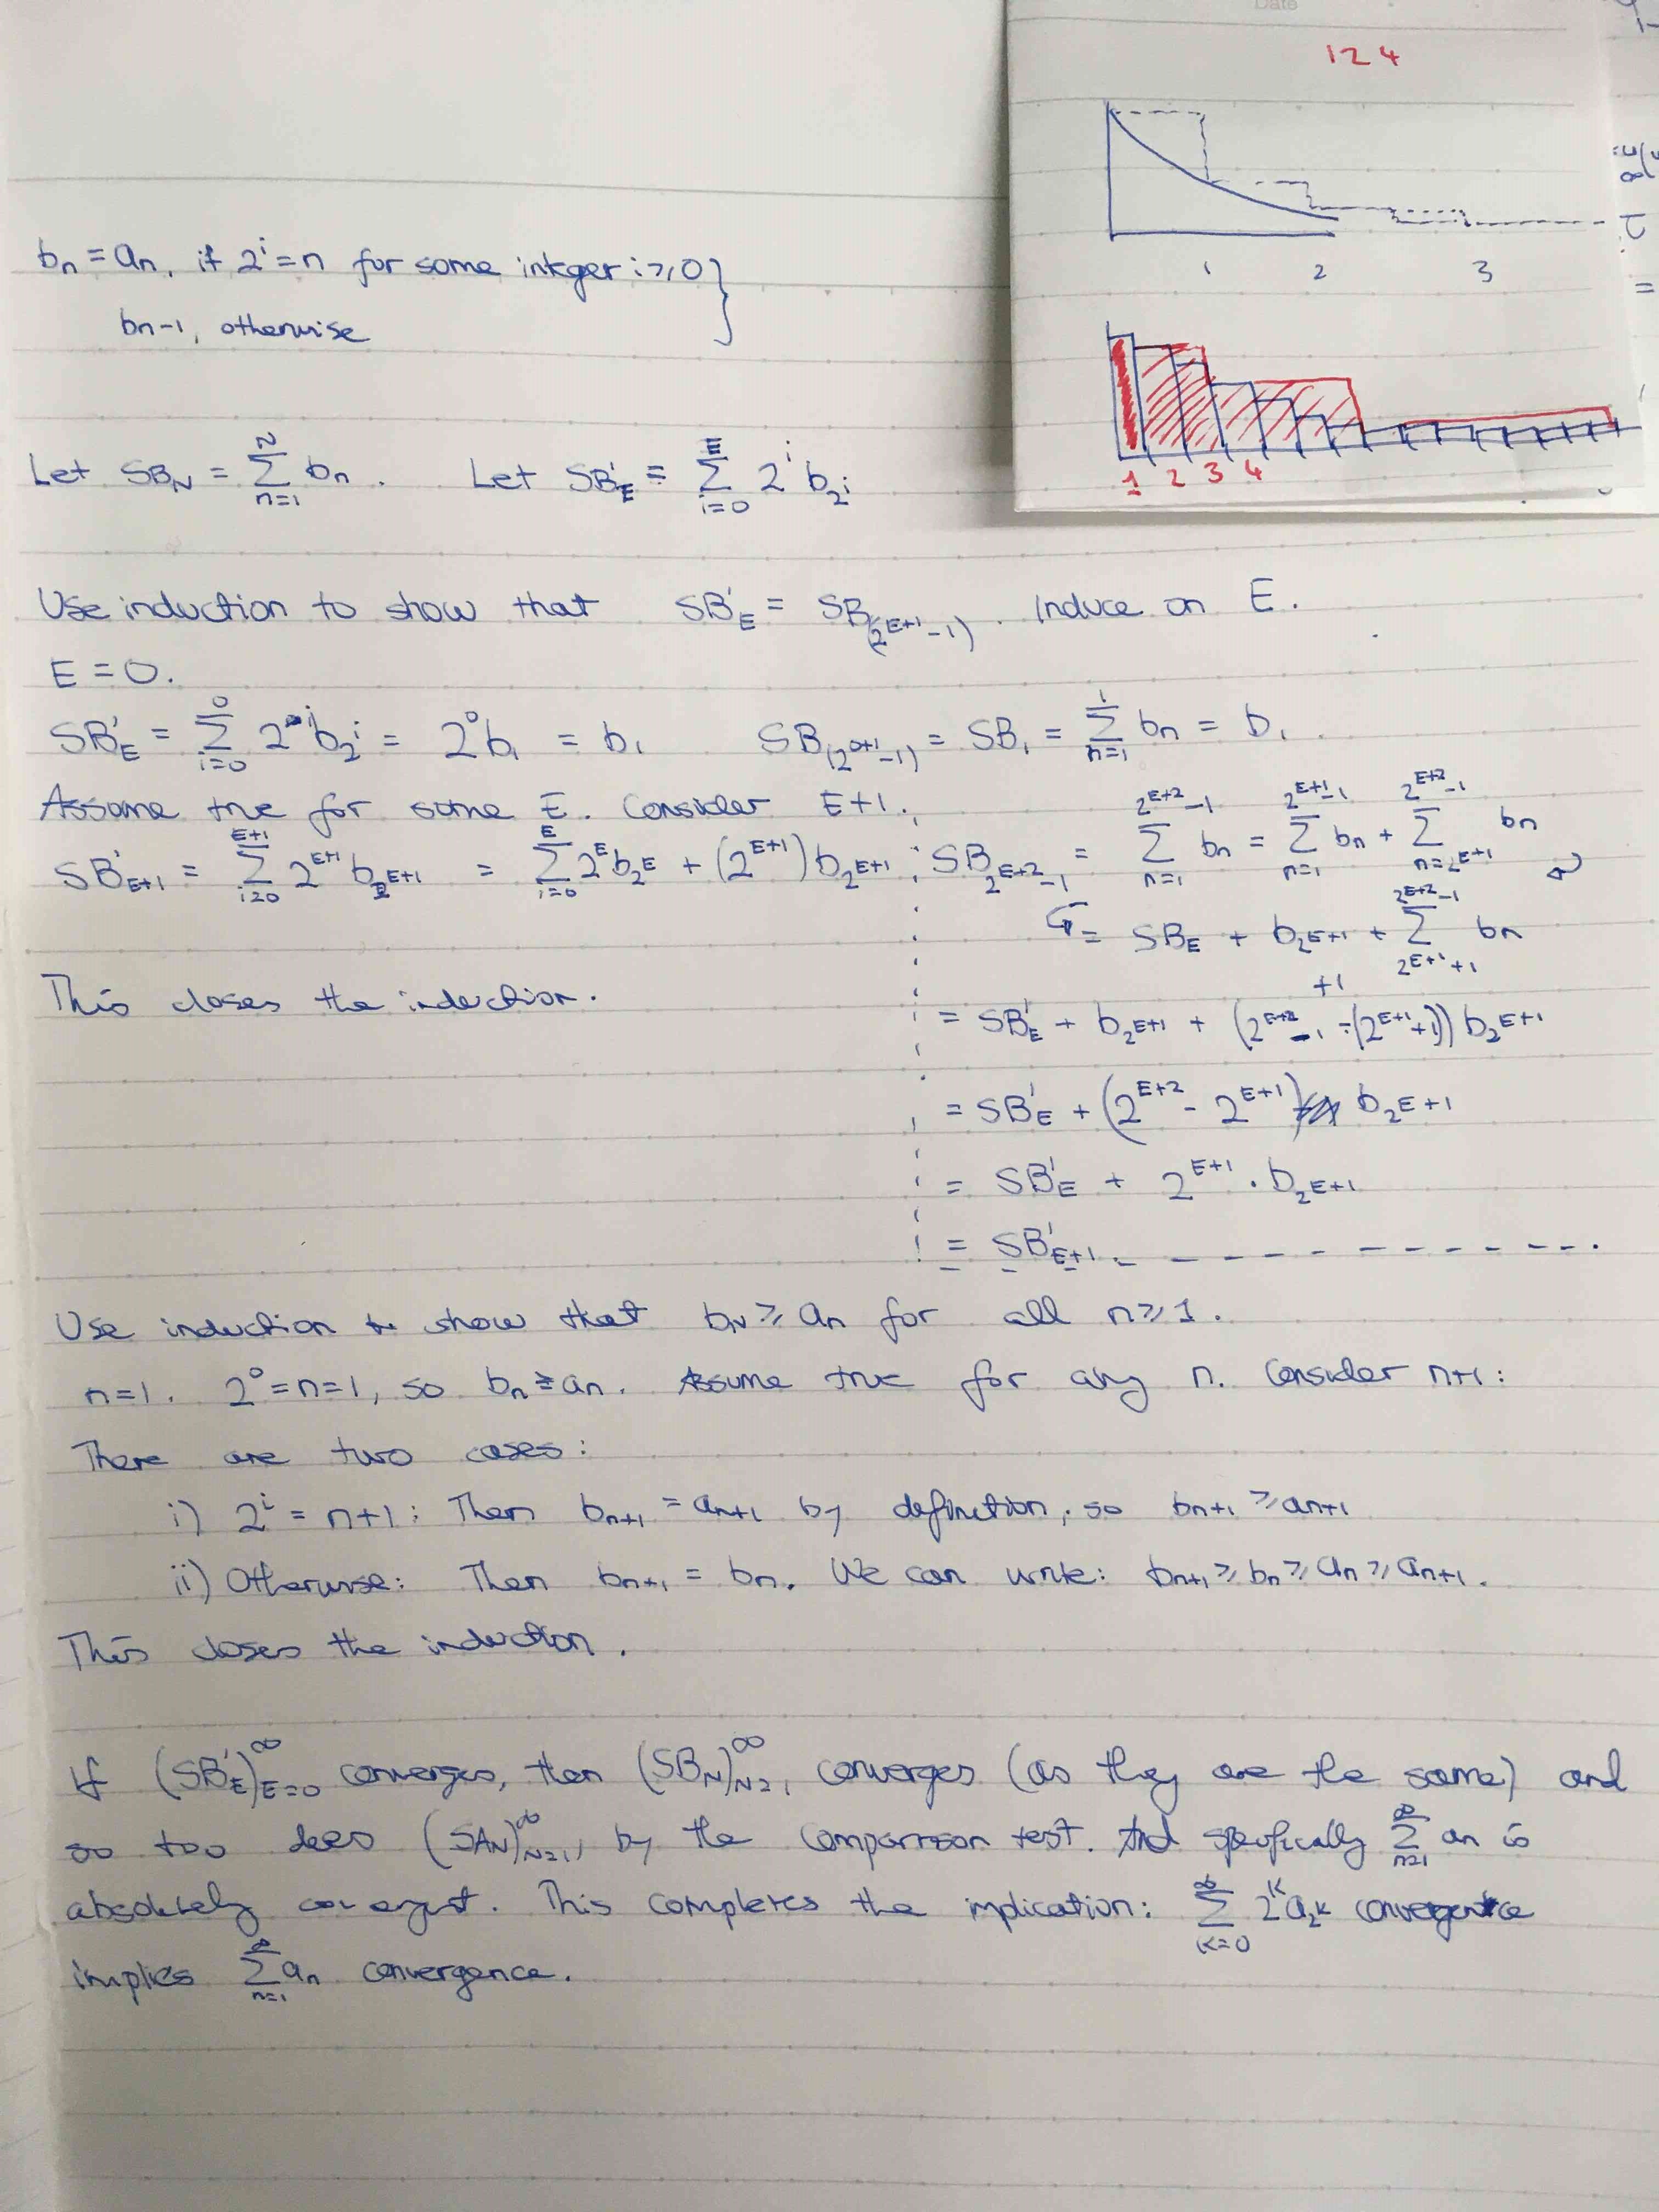 Date
124
1 2 3
1 2 3 4
bn = an, if 2^i = n for some integer i ≥ 0 }
bn-1, otherwise
Let SB_N = Σ_{n=1}^{N} bn . Let SB'_E = Σ_{i=0}^{E} 2^i b_{2^i}
Use induction to show that SB'_E = SB_{(2^{E+1}-1)} . Induce on E.
E = 0.
SB'_E = Σ_{i=0}^{0} 2^i b_{2^i} = 2^0 b_1 = b_1 SB_{(2^{0+1}-1)} = SB_1 = Σ_{n=1}^{1} bn = b_1 .
Assume true for some E. Consider E+1.
SB'_{E+1} = Σ_{i=0}^{E+1} 2^{E+1} b_{2^{E+1}} = Σ_{i=0}^{E} 2^E b_{2^E} + (2^{E+1}) b_{2^{E+1}}
This closes the induction.
SB_{2^{E+2}-1} = Σ_{n=1}^{2^{E+2}-1} bn = Σ_{n=1}^{2^{E+1}-1} bn + Σ_{n=2^{E+1}}^{2^{E+2}-1} bn
= SB_E + b_{2^{E+1}} + Σ_{2^{E+1}+1}^{2^{E+2}-1} bn
+1
= SB'_E + b_{2^{E+1}} + (2^{E+2} - 1 - (2^{E+1}+1)) b_{2^{E+1}}
= SB'_E + (2^{E+2} - 2^{E+1}) b_{2^{E+1}}
= SB'_E + 2^{E+1} . b_{2^{E+1}}
= SB'_{E+1} .
Use induction to show that b_N ≥ an for all n ≥ 1.
n=1. 2^0 = n = 1, so bn ≥ an. Assume true for any n. Consider n+1:
There are two cases:
i) 2^i = n+1: Then b_{n+1} = a_{n+1} by definition, so b_{n+1} ≥ a_{n+1}
ii) Otherwise: Then b_{n+1} = bn. We can write: b_{n+1} ≥ bn ≥ an ≥ a_{n+1}.
This closes the induction.
If (SB'_E)_{E=0}^∞ converges, then (SB_N)_{N=1}^∞ converges (as they are the same) and
so too does (SA_N)_{N=1}^∞, by the comparison test. And specifically Σ_{n=1}^∞ an is
absolutely convergent. This completes the implication: Σ_{k=0}^∞ 2^k a_{2^k} convergence
implies Σ_{n=1}^∞ an convergence.